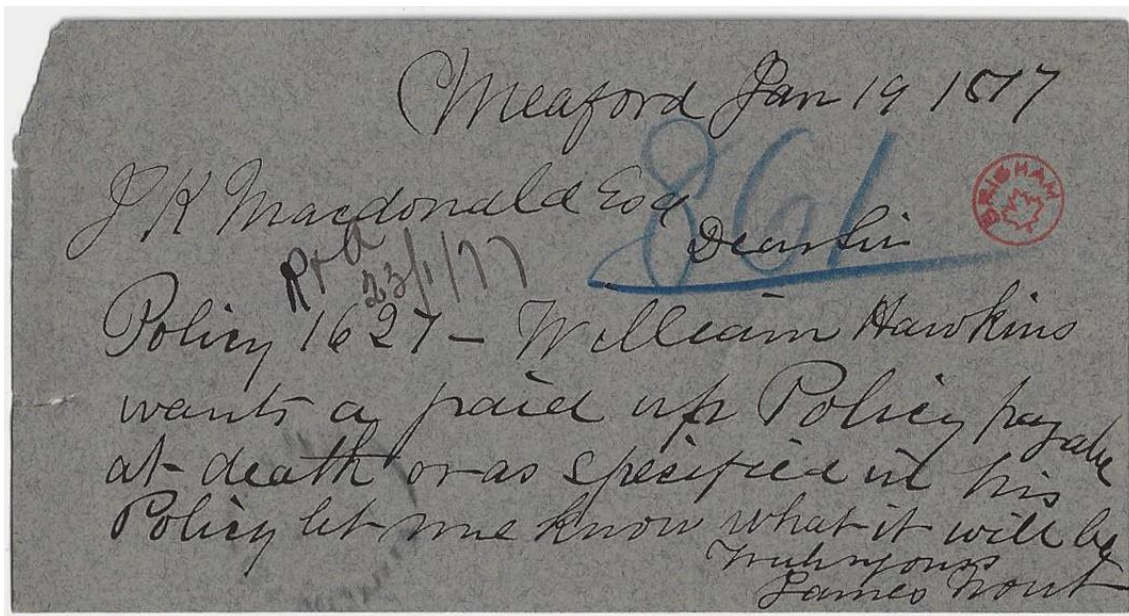 Meaford Jan 19 1877
861
BRIGHAM
J K Macdonald Esq
Dear Sir
23/1/77
Policy 1627 - William Hawkins
wants a paid up Policy payable
at death or as specified in his
Policy let me know what it will be
Truly yours
James Trout